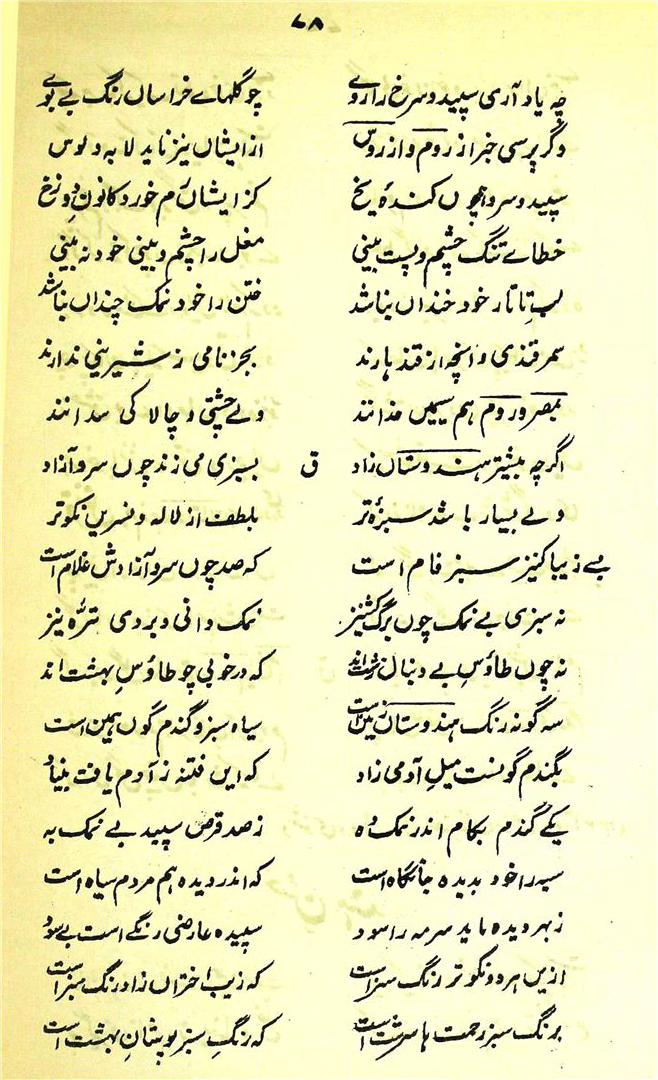 ۷۸
چه یاد آری سپید و سرخ را روے چو گلهاے خراساں رنگ بے بوے
وگر پرسی خبر از روم و از روس از ایشاں نیز ناید لابه و لوس
سپید و سرد همچوں کندهٔ یخ کز ایشاں رم خورد کانون دوزخ
خطاے تنگ چشم و پست بینی مغل را چشم و بینی خود نه بینی
لب تاتار خود خنداں نباشد ختن را خود نمک چنداں نباشد
سمرقندی و آنچه از قندهارند بجز نامی ز شیرینی ندارند
بمصر و روم هم سیمیں خدانند ولے چستی و چالاکی ندانند
اگرچه بیشتر هندوستاں زاد ق بسبزی می زند چوں سرو آزاد
ولے بسیار باشد سبزهٔ تر بلطف از لاله و نسریں نکوتر
بسے زیبا کنیز سبز فام است که صد چوں سرو آزادش غلام است
نه سبزی بے نمک چوں برگ کشنیز نمک دانی و بر دی تره نیز
نه چوں طاؤس بے دنبال زشت اند که در خوبی چو طاؤس بهشت اند
سه گونه رنگ هندوستاں زمین است سیاه سبز و گندم گوں همین است
بگندم گونست میل آدمی زاد که ایں فتنه ز آدم یافت بنیاد
یکے گندم بکام اندر نمک ده ز صد قرص سپید بے نمک به
سیه را خود بدیده جایگاه است که اندر دیده هم مردم سیاه است
ز بهر دیده باید سرمه را سود سپیده عارضی رنگے است بے سود
ازیں هر دو نکوتر رنگ سبز است که زیب اختراں زاد رنگ سبز است
برنگ سبز رحمت ها سرشت است که رنگ سبز پوشان بهشت است